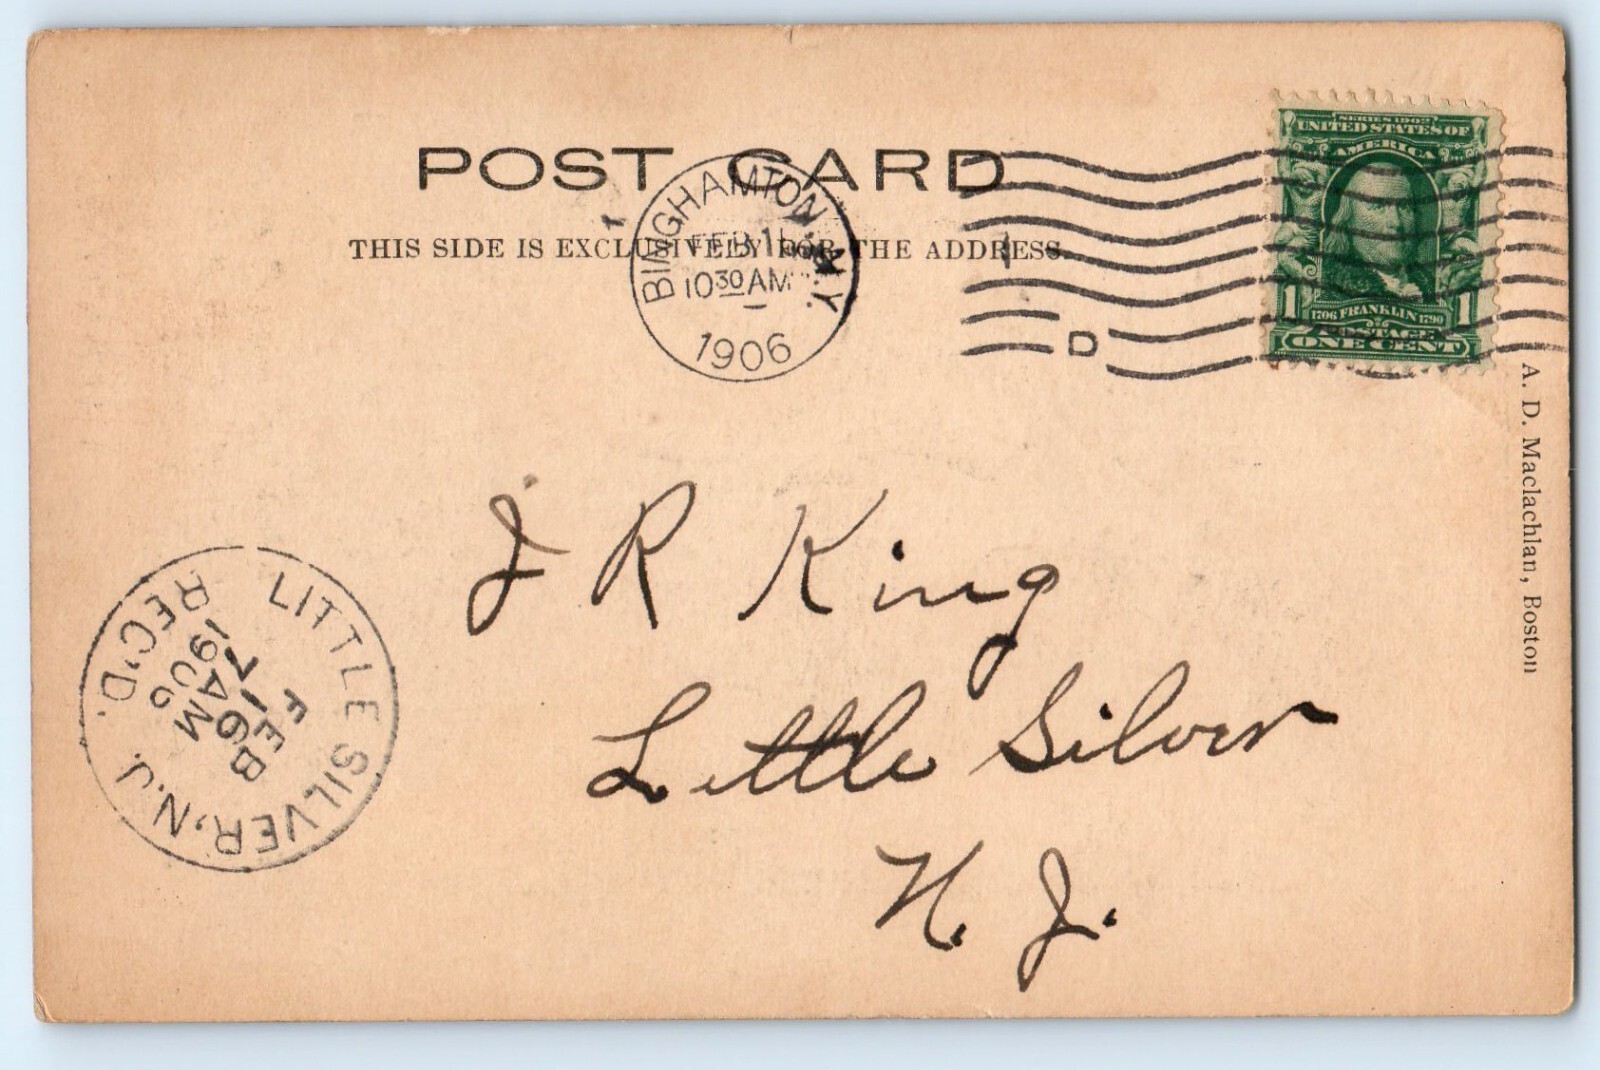 POST CARD
THIS SIDE IS EXCLUSIVELY FOR THE ADDRESS.
BINGHAMTON, N.Y.
FEB
10 30 AM
1906
D
SERIES 1902
UNITED STATES OF
AMERICA
1 1
1706 FRANKLIN 1790
POSTAGE
ONE CENT
A. D. Maclachlan, Boston
J R King
Little Silver
N. J.
LITTLE SILVER, N.J.
FEB
16
7 AM
1906
REC'D.